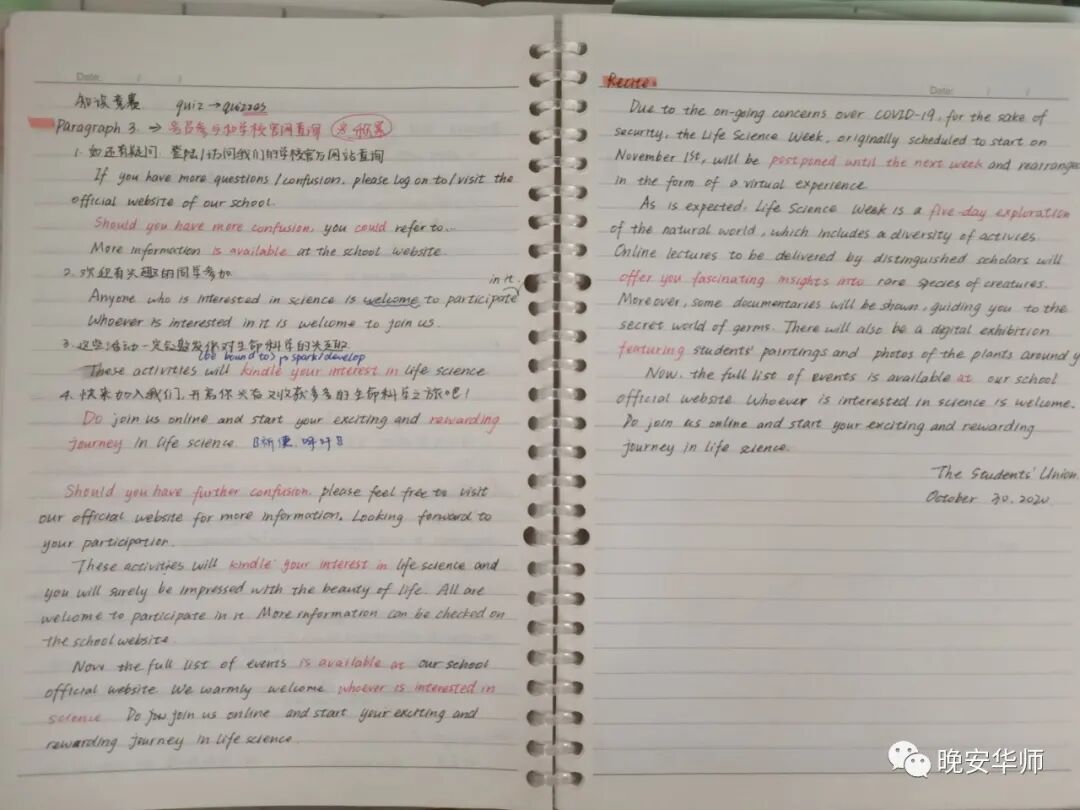 Date: / /
知识竞赛 quiz → quizzes
Paragraph 3 →
1. 如还有疑问, 登陆/访问我们的学校官方网站查询
If you have more questions / confusion, please log on to / visit the
official website of our school.
Should you have more confusion, you could refer to...
More information is available at the school website
2. 欢迎有兴趣的同学参加
in it.
Anyone who is interested in science is welcome to participate
Whoever is interested in it is welcome to join us.
3. 这些活动一定会激发你对生命科学的兴趣
(be bound to) spark/develop
These activities will kindle your interest in life science
4. 快来加入我们, 开启你兴奋又收获多多的生命科学之旅吧!
Do join us online and start your exciting and rewarding
journey in life science.
Should you have further confusion, please feel free to visit
our official website for more information. Looking forward to
your participation.
These activities will kindle your interest in life science and
you will surely be impressed with the beauty of life. All are
welcome to participate in it. More information can be checked on
the school website.
Now the full list of events is available at our school
official website. We warmly welcome whoever is interested in
science. Do join us online and start your exciting and
rewarding journey in life science.
Recite.
Date: / /
Due to the on-going concerns over COVID-19, for the sake of
security, the Life Science Week, originally scheduled to start on
November 1st, will be postponed until the next week and rearranged
in the form of a virtual experience.
As is expected, Life Science Week is a five-day exploration
of the natural world, which includes a diversity of activies.
Online lectures to be delivered by distinguished scholars will
offer you fascinating insights into rare species of creatures.
Moreover, some documentaries will be shown, guiding you to the
secret world of germs. There will also be a digital exhibition
featuring students' paintings and photos of the plants around y
Now, the full list of events is available at our school
official website. Whoever is interested in science is welcome.
Do join us online and start your exciting and rewarding
journey in life science.
The Students' Union.
October 30, 2020.
晚安华师